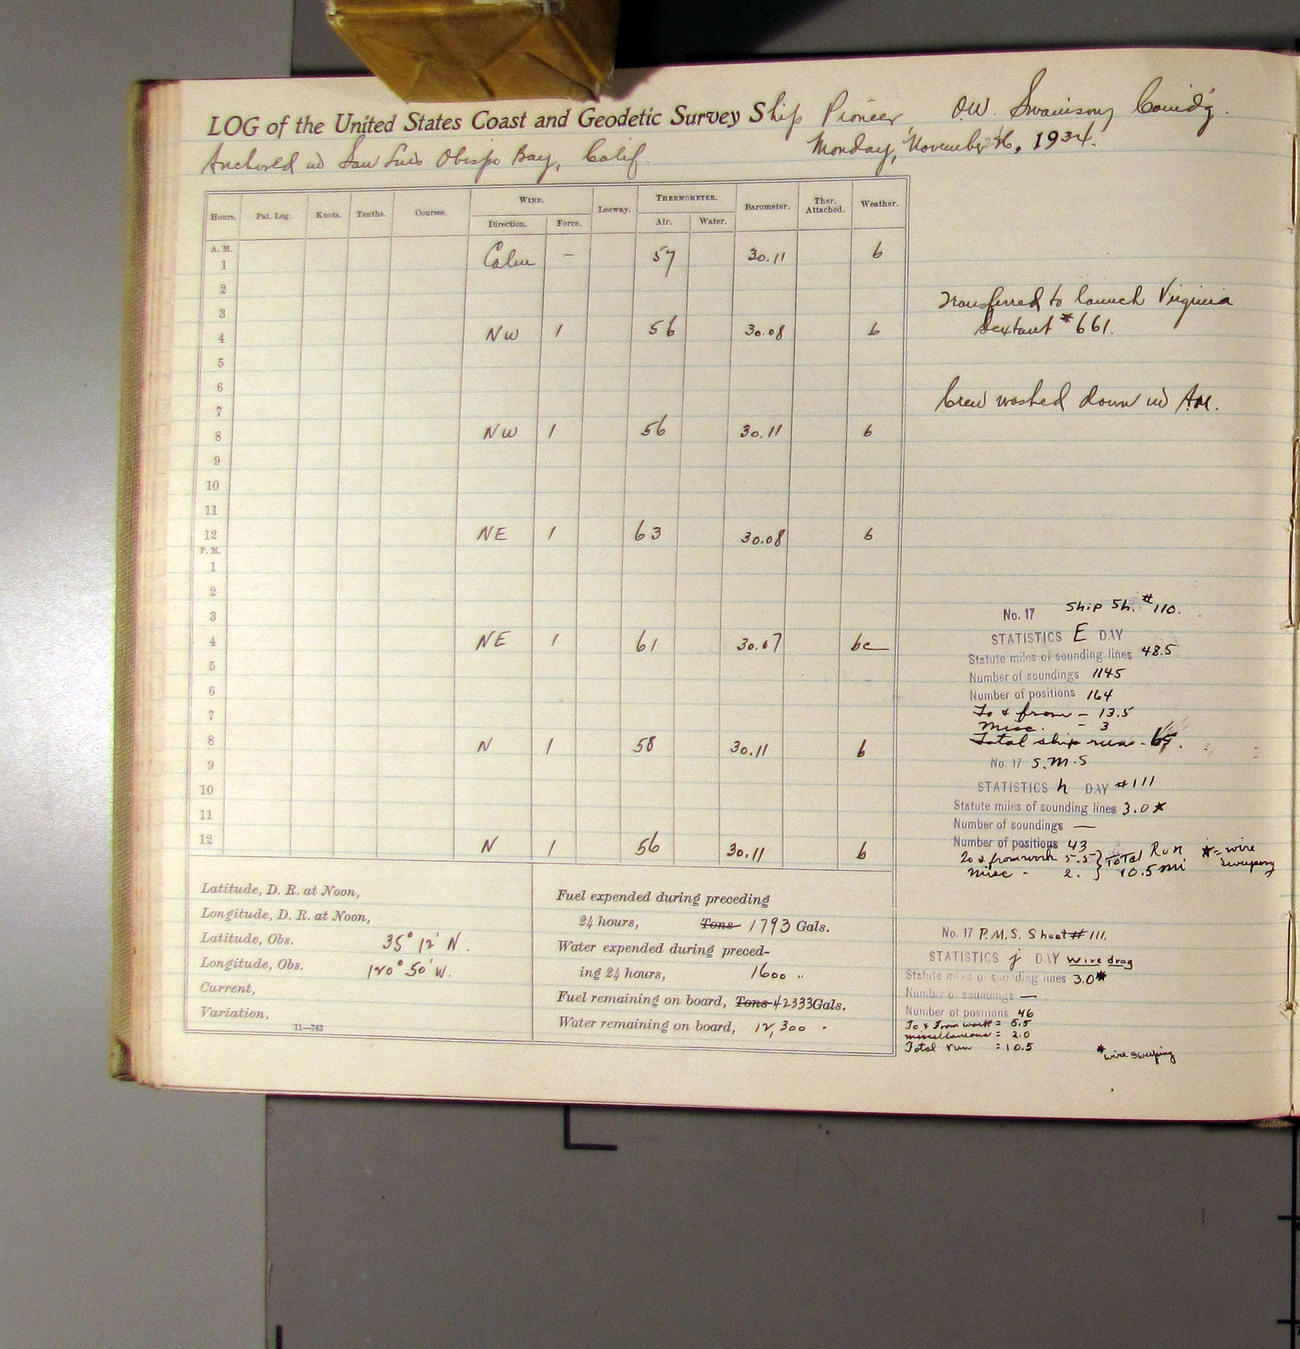 LOG of the United States Coast and Geodetic Survey Ship Pioneer, O.W. Swainson, Comd'g.
Anchored in San Luis Obispo Bay, Calif. Monday, November 26, 1934.
Hours. Pat. Log. Knots. Tenths. Courses. WIND. Leeway. THERMOMETER. Barometer. Ther. Attached. Weather.
Direction. Force. Air. Water.
A. M.
1 Calm – 57 30.11 b
2
3
4 NW 1 56 30.08 b
5
6
7
8 NW 1 56 30.11 b
9
10
11
12 NE 1 63 30.08 b
P. M.
1
2
3
4 NE 1 61 30.07 bc
5
6
7
8 N 1 58 30.11 b
9
10
11
12 N 1 56 30.11 b
Transferred to launch Virginia
Sextant #661.
Crew washed down in AM.
No. 17 Ship Sh. #110.
STATISTICS E DAY
Statute miles of sounding lines 48.5
Number of soundings 1145
Number of positions 164
To & from – 13.5
Misc. – 3
Total ship run – 65.
No. 17 S.M.S
STATISTICS h DAY #111
Statute miles of sounding lines 3.0*
Number of soundings —
Number of positions 43
To & from work 5.5 } Total Run
Misc - 2. } 10.5 mi
* = wire
sweeping
No. 17 P.M.S. Sheet #111.
STATISTICS j DAY wire drag
Statute miles of sounding lines 3.0*
Number of soundings —
Number of positions 46
To & From work = 5.5
miscellaneous = 2.0
Total run = 10.5
*wire sweeping
Latitude, D. R. at Noon,
Longitude, D. R. at Noon,
Latitude, Obs. 35° 12' N.
Longitude, Obs. 120° 50' W.
Current,
Variation,
11—743
Fuel expended during preceding
24 hours, Tons 1793 Gals.
Water expended during preced-
ing 24 hours, 1600 "
Fuel remaining on board, Tons 42333 Gals.
Water remaining on board, 12,300 "